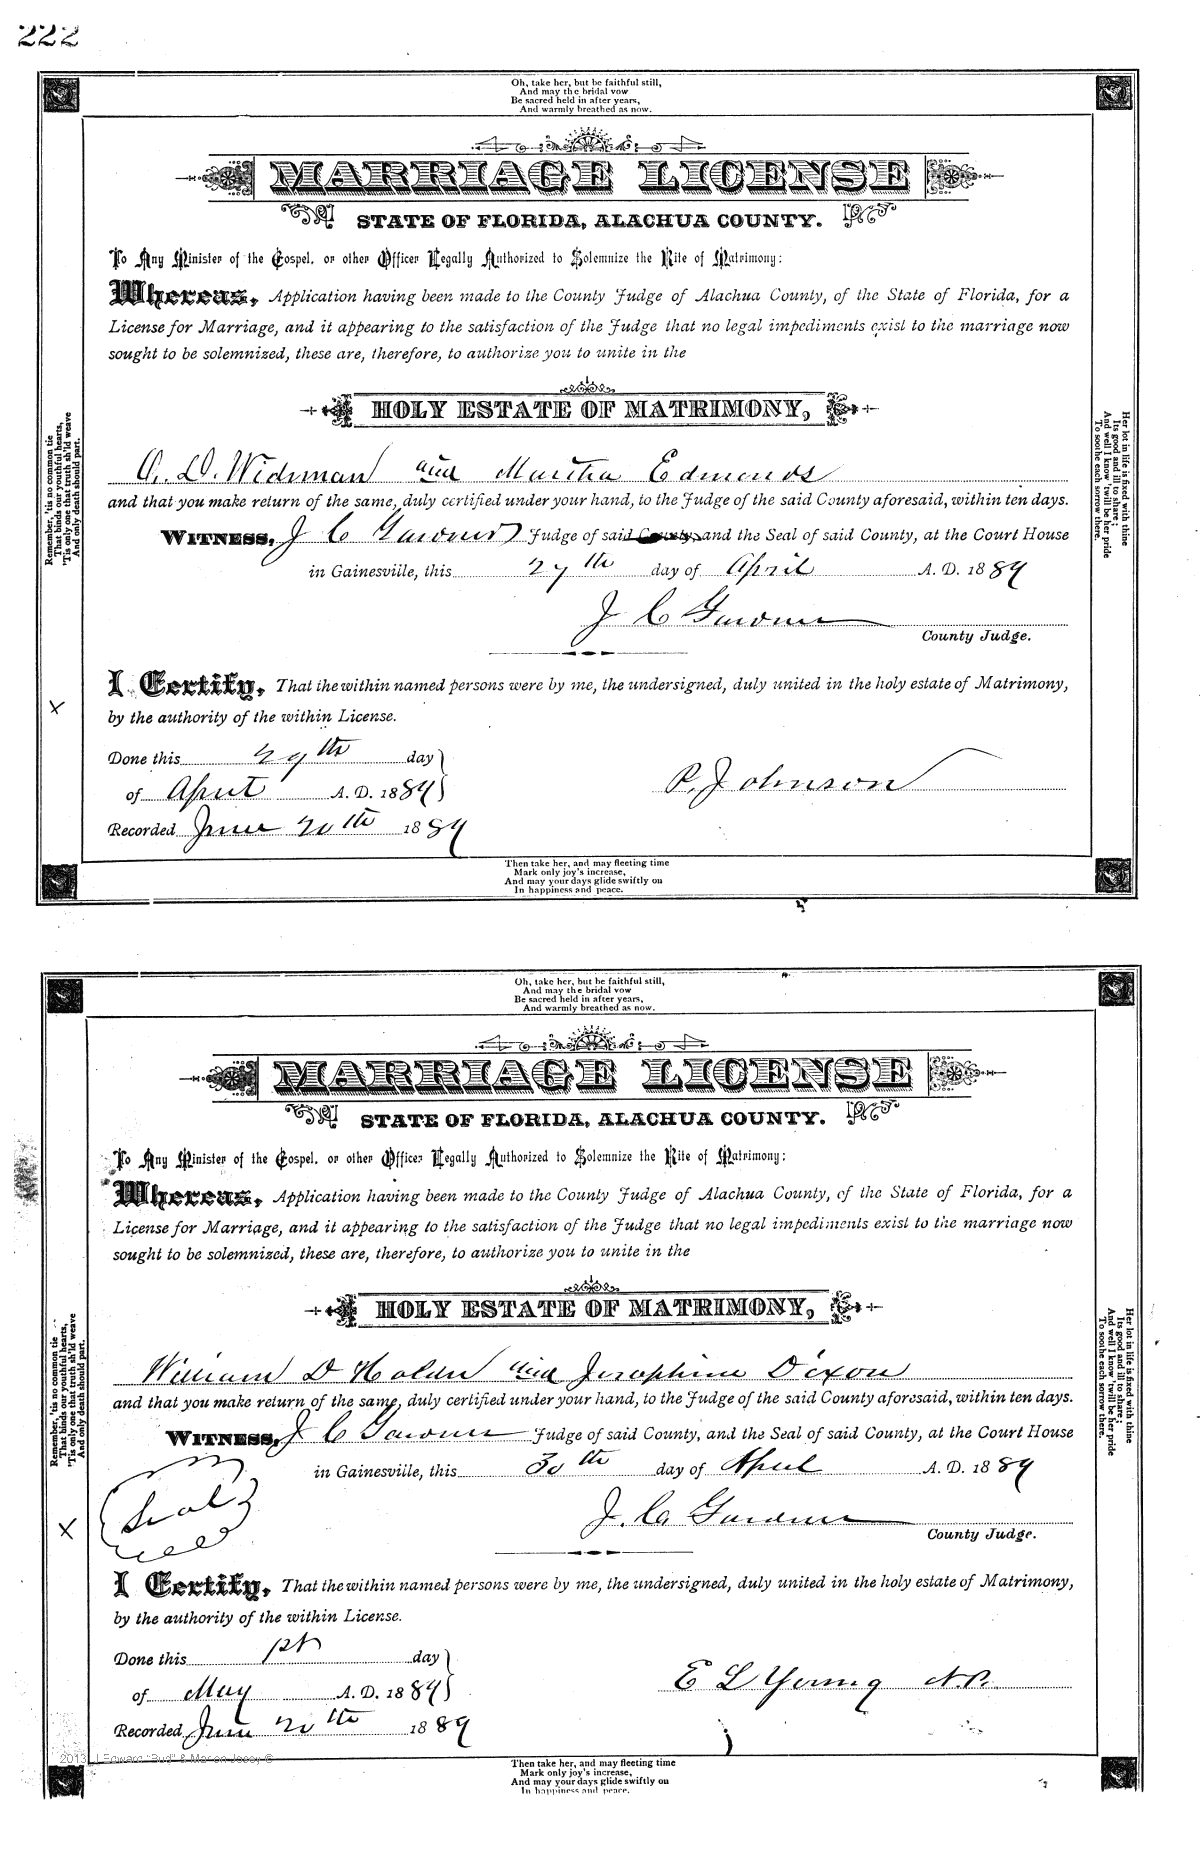 222
Oh, take her, but be faithful still,
And may the bridal vow
Be sacred held in after years,
And warmly breathed as now.
MARRIAGE LICENSE
STATE OF FLORIDA, ALACHUA COUNTY.
To Any Minister of the Gospel, or other Officer Legally Authorized to Solemnize the Rite of Matrimony:
Whereas, Application having been made to the County Judge of Alachua County, of the State of Florida, for a
License for Marriage, and it appearing to the satisfaction of the Judge that no legal impediments exist to the marriage now
sought to be solemnized, these are, therefore, to authorize you to unite in the
HOLY ESTATE OF MATRIMONY,
D. Widman and Martha Edmonds
and that you make return of the same, duly certified under your hand, to the Judge of the said County aforesaid, within ten days.
WITNESS, J C Gardner Judge of said County, and the Seal of said County, at the Court House
in Gainesville, this 27th day of April A. D. 1889
J C Gardner
County Judge.
I Certify, That the within named persons were by me, the undersigned, duly united in the holy estate of Matrimony,
by the authority of the within License.
Done this 29th day
of April A. D. 1889
P. Johnson
Recorded June 20th 1889
Remember, 'tis no common tie
That binds our youthful hearts,
'Tis only one that truth sh'ld weave
And only death should part.
Her lot in life is fixed with thine
Its good and ill to share;
And well I know 'twill be her pride
To soothe each sorrow there.
Then take her, and may fleeting time
Mark only joy's increase,
And may your days glide swiftly on
In happiness and peace.
Oh, take her, but be faithful still,
And may the bridal vow
Be sacred held in after years,
And warmly breathed as now.
MARRIAGE LICENSE
STATE OF FLORIDA, ALACHUA COUNTY.
To Any Minister of the Gospel, or other Officer Legally Authorized to Solemnize the Rite of Matrimony:
Whereas, Application having been made to the County Judge of Alachua County, of the State of Florida, for a
License for Marriage, and it appearing to the satisfaction of the Judge that no legal impediments exist to the marriage now
sought to be solemnized, these are, therefore, to authorize you to unite in the
HOLY ESTATE OF MATRIMONY,
William D Holden and Josephine Dixon
and that you make return of the same, duly certified under your hand, to the Judge of the said County aforesaid, within ten days.
WITNESS, J C Gardner Judge of said County, and the Seal of said County, at the Court House
in Gainesville, this 30th day of April A. D. 1889
Seal
J. C. Gardner
County Judge.
I Certify, That the within named persons were by me, the undersigned, duly united in the holy estate of Matrimony,
by the authority of the within License.
Done this 1st day
of May A. D. 1889
E L Young N.P.
Recorded June 20th 1889
Remember, 'tis no common tie
That binds our youthful hearts,
'Tis only one that truth sh'ld weave
And only death should part.
Her lot in life is fixed with thine
Its good and ill to share;
And well I know 'twill be her pride
To soothe each sorrow there.
2013 J Edward "Bud" &
Then take her, and may fleeting time
Mark only joy's increase,
And may your days glide swiftly on
In happiness and peace.